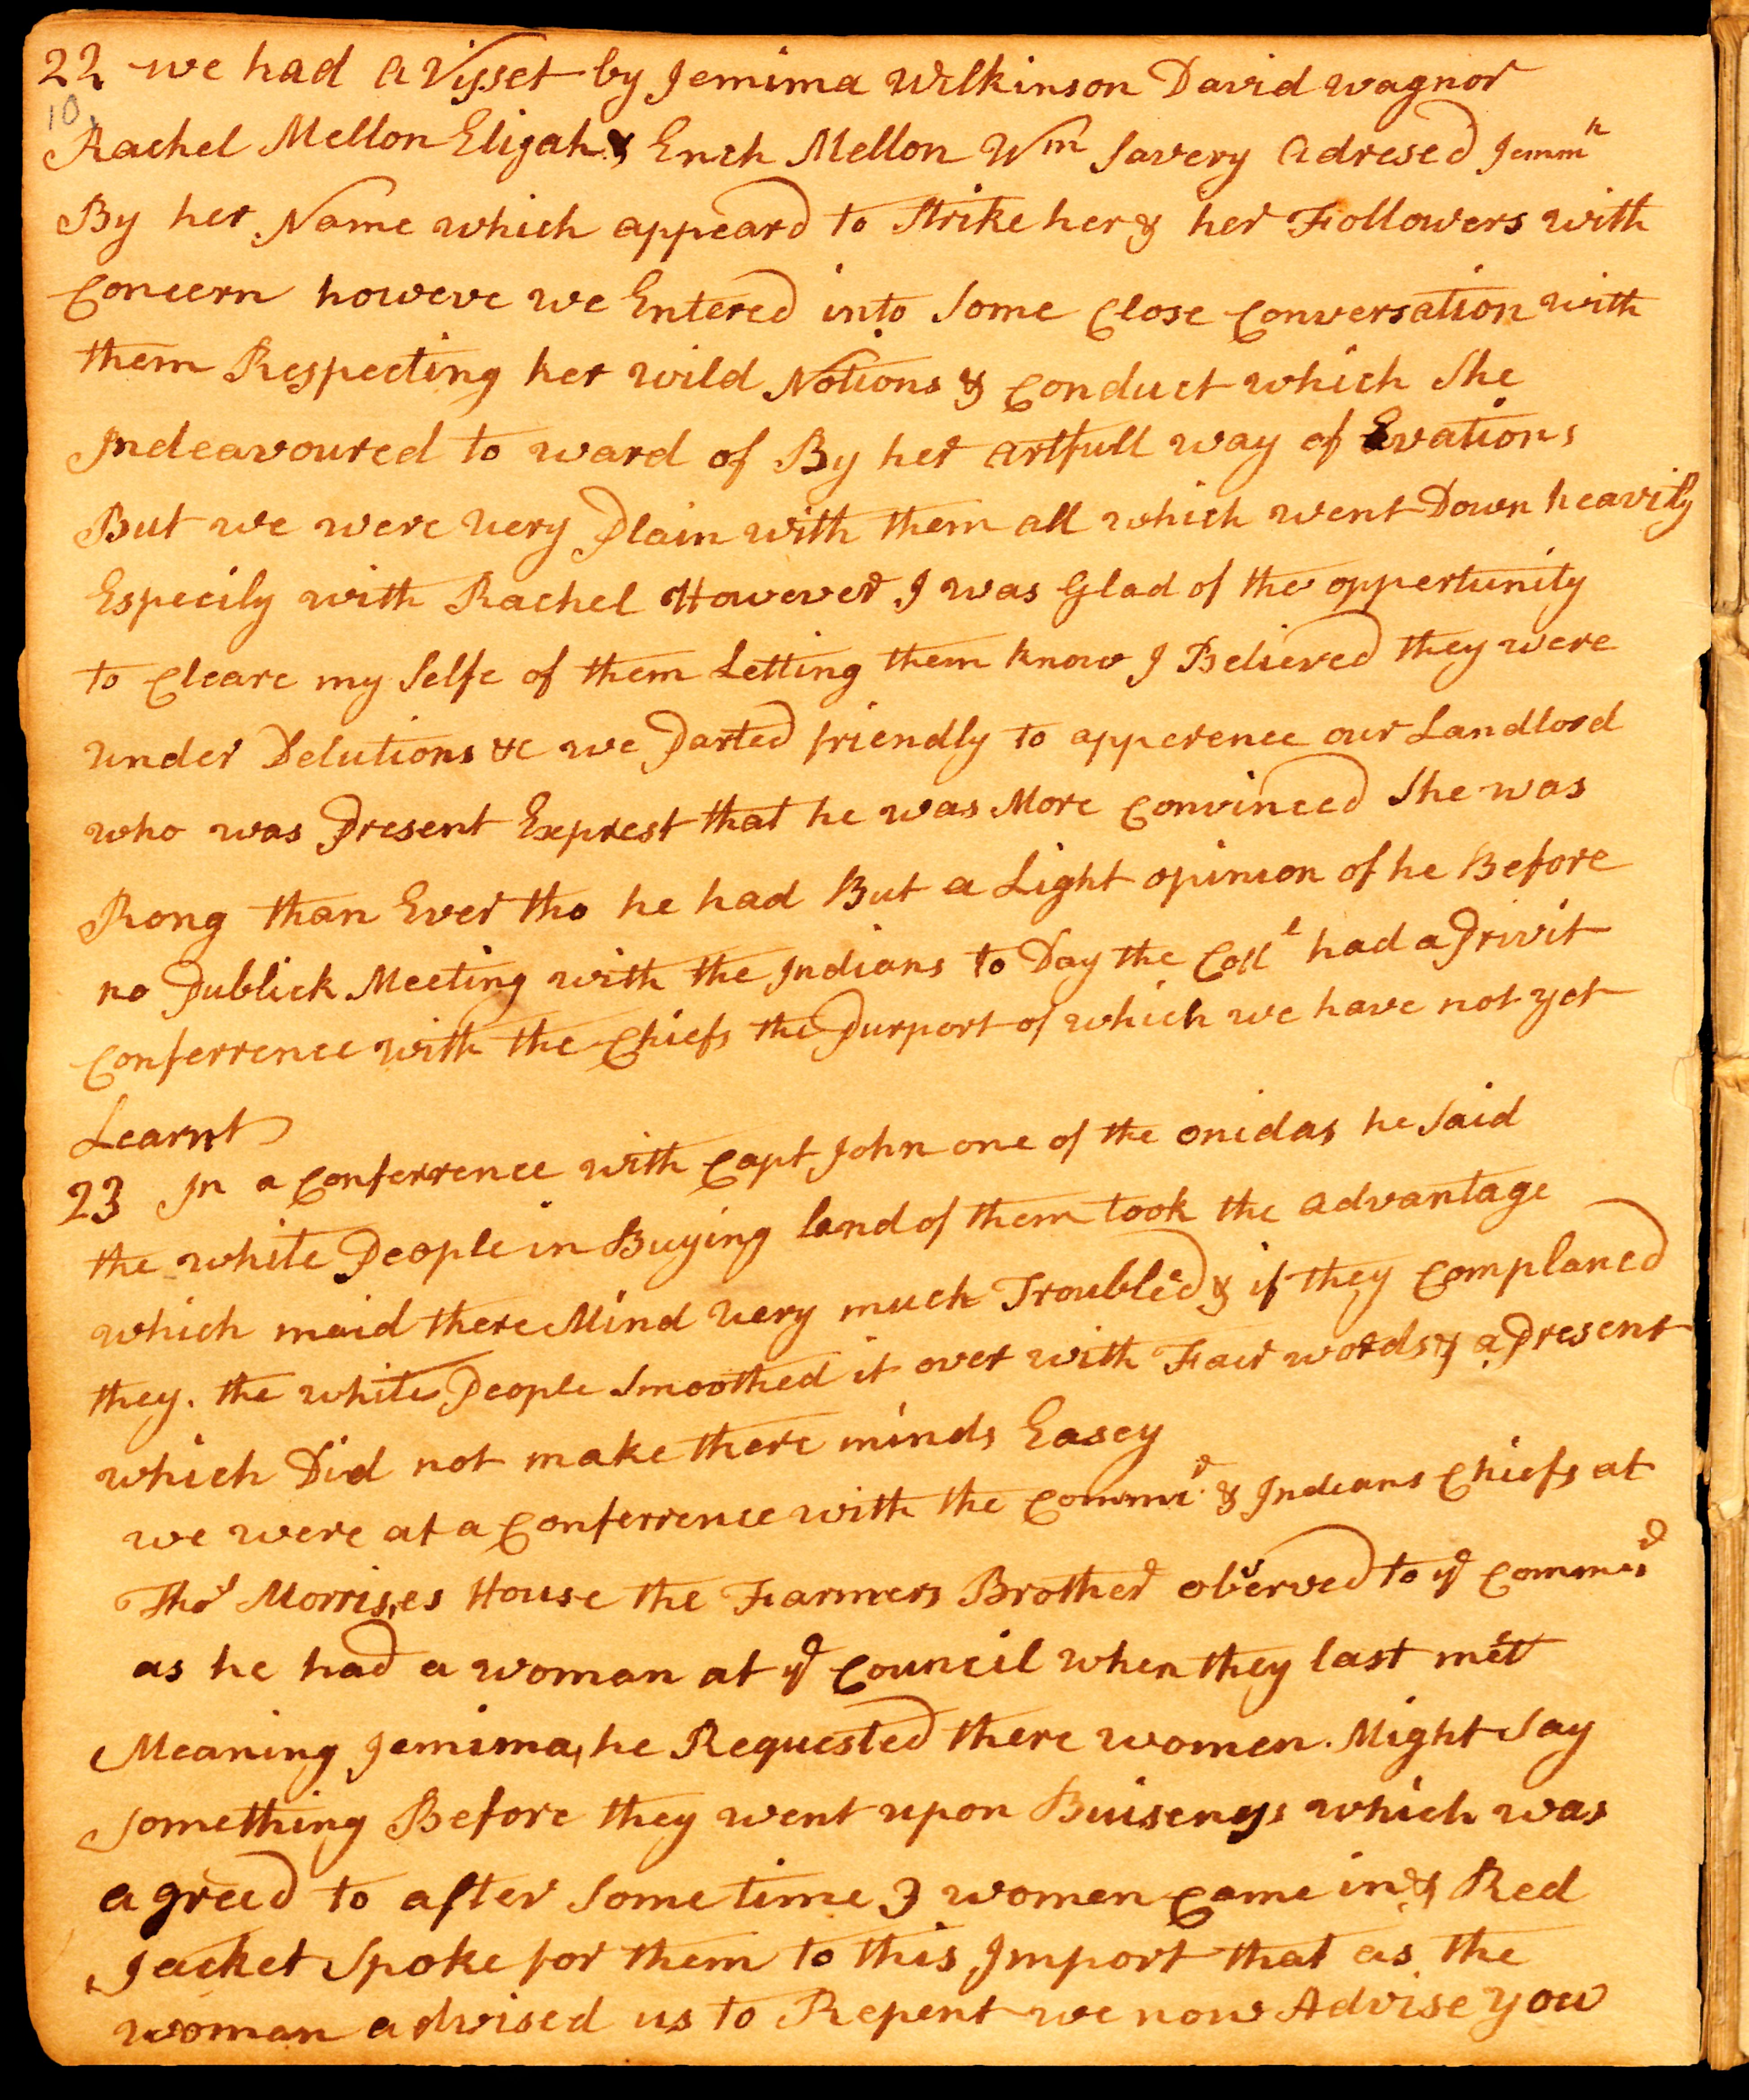 22 we had a Visset by Jemima Wilkinson David wagnor
10
Rachel Mellon Elijah & Ench Mellon Wm Savery adresed Jemmh
By her Name which appeard to Strike her & her Followers with
Concern howeve we Entered into Some Close Conversation with
them Respecting her wild Notions & Conduct which She
Indeavoured to ward of By her artfull way of Evations
But we were very Plain with them all which went Down heavily
Especily with Rachel However I was Glad of the oppertunity
to Cleare my Selfe of them Letting them know I Believed they were
under Delutions &c we Parted friendly to apperence our Landlord
who was Present Exprest that he was More Convinced She was
Rong than Ever tho he had But a Light opinion of he Before
no Publick Meeting with the Indians to Day the Coll had a Privit
Conferrence with the Chiefs the Purport of which we have not yet
Learnt
23 In a Conferrence with Capt John one of the onidas he Said
the white People in Buying land of them took the advantage
which maid there Mind very much Troubled & if they Complaned
they. the white People Smoothed it over with Fair words & a Present
which Did not make there minds Easey
we were at a Conferrence with the Commir & Indians Chiefs at
Thos Morrises House the Farmers Brother observed to ye Commisr
as he had a woman at ye Council when they last met
Meaning Jemima, he Requested there women. Might Say
Something Before they went upon Buisenyss which was
agreed to after Some time 3 women Came in & Red
Jacket Spoke for them to this Import that as the
woman advised us to Repent we now Advise you